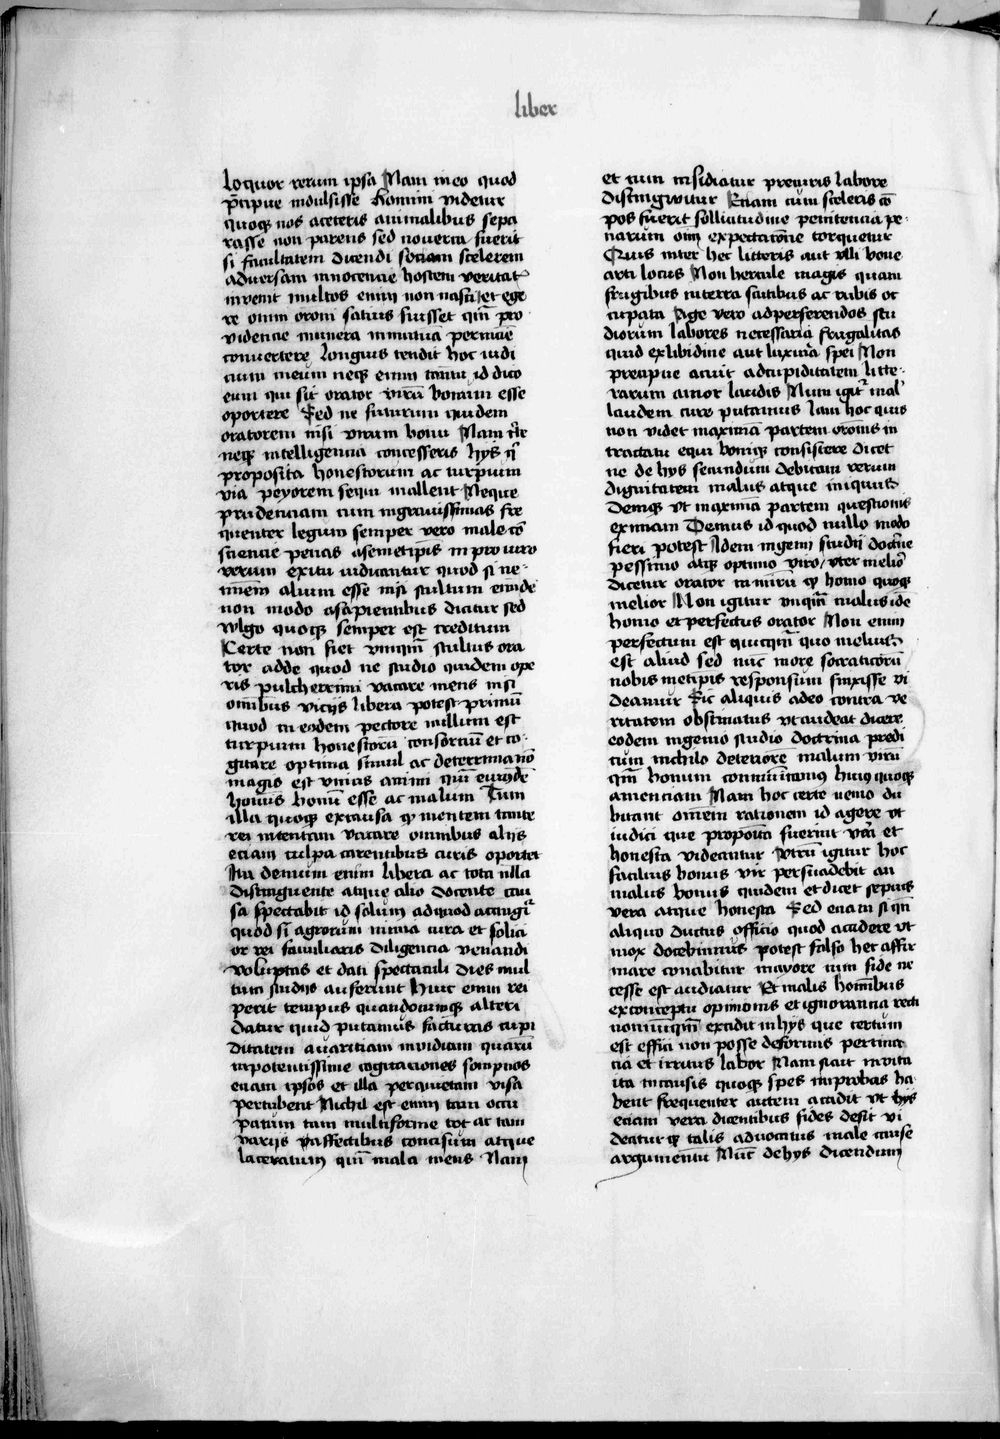 liber
Loquor rerum ipsa Nam in eo quod
p̄cipue indulsisse homini videtur
quoq; nos a ceteris animalibus sepa
rasse non parens sed noverca fuerit
si facultatem dicendi sociam scelerem
adversam innocentie hostem veritat
invenit multos enim non nasci et ege
re omni oroni satius fuisset qm̄ pro
videncie munera in mutuā permicie
convertere Longius tendit hoc iudi
cium meum neq; enim tantū id dico
eum qui sit orator virū bonum esse
oportere Sed ne futurum quidem
oratorem nisi virum bonū Nam c̄te
neq; intelligentia concesseris hys q̄
proposita honestorum ac turpium
via peyorem sequi mallent Neque
prudenciam cum in gravissimas fre
quenter legum semper vero male cō
sciencie penas a semetipis in proviro
rerum exitu inducantur quod si ne-
minem alium esse nisi stultum eundē
non modo a sapientibus dicitur sed
wlgo quoq; semper est creditum
Certe non fiet vnqm̄ stultus ora
tor adde quod ne studio quidem ope
ris pulcherrimi vacare mens nisi
omībus vicijs libera potest primū
quod in eodem pectore nullum est
turpium honestorū consorciū et co-
gitare optima simul ac deterrima nō
magis est vnius animi qm̄ eiusdē
hominis bonū esse ac malum Tum
illa quoq; ex causa q; mentem tante
rei intentam vacare omnibus alijs
etiam culpa carentibus curis oportet
Ita demum enim libera ac tota nulla
distinguente atque alio docente cau
sa spectabit id solum ad quod accingr̄
quod si agrorum nimia cura et solici
or rei familiaris diligencia venandi
voluptas et dati spectaculi dies mul
tum studijs auferunt huic enim rei
perit tempus quandocumq; alteri
datur quid putamus facturas cupi
ditatem avariciam invidiam quarū
inpotentissime cogitaciones sompnos
etiam ipsos et illa per quietem visa
perturbent Nichil est enim tam occu
patum tam multiforme tot ac tam
varijs affectibus concisum atque
laceratum qm̄ mala mens Nam
et cum insidiatur precuris labore
distinguitur Etiam cum sceleris cō
pos fuerit sollicitudine penitencia pe-
narum oīm expectacione torquetur
Quis inter hec litteris aut ulli bone
arti locus Non hercule magis quam
frugibus in terra sentibus ac rubis oc
cupata Age vero ad perferendos stu
diorum labores necessaria frugalitas
quid ex libidine aut luxuria spei Non
precipue acuit ad cupiditatem litte-
rarum amor laudis Num igit mal'
laudem cure putamus Iam hoc quis
non videt maximā partem oronis in
tractatu equi boniq; consistere dicet
ne de hys secundum debitam rerum
dignitatem malus atque iniquus
Deniq; vt maximā partem questionis
eximam Demus id quod nullo modo
fieri potest Idem ingenij studij doctne
pessimo atq; optimo viro/ vter melior
dicetur orator ni mirū q; homo quoq;
melior Non igitur vnqm̄ malus idē
homo et perfectus orator Non enim
perfectum est quicqm̄ quo melius
est aliud sed nūc more socraticorū
nobis metipis responsum finxisse vi
deamur Sic aliquis adeo contra ve
ritatem obstinatus vt audeat dicere
eodem ingenio studio doctrina predi
tum nichilo deteriorē malum virū
qm̄ bonum convincamus huiq quoq;
amenciam Nam hoc certe nemo du
bitant omēm rationem id agere vt
iudici que proposita fuerint vera et
honesta videantur Vtrū igitur hoc
facilius bonus vir persuadebit an
malus bonus quidem et dicet sepius
vera atque honesta Sed etiam si qn̄
aliquo ductus officio quod accidere vt
mox docebimus potest falso hec affir
mare conabitur mayore cum fide ne
cesse est audiatur Et malis hominibus
ex conceptu opinionis et ignorancia recti
nonnunqm̄ excidit in hys que certum
est effici non posse deformis pertina
cia et irritus labor Nam sicut in vita
ita in causis quoq; spes improbas ha
bent frequenter autem accidit vt hys
etiam vera dicentibus fides desit vi
deatur q; talis advocatus male cause
argumentū Nūc de hys dicendum